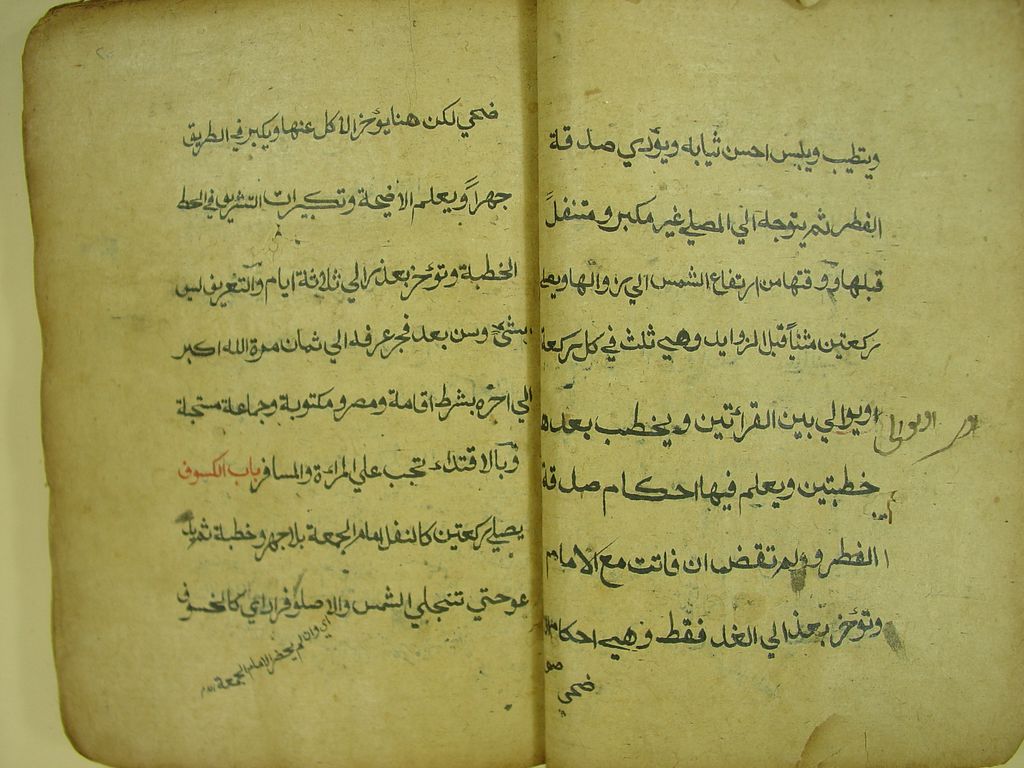 ويتطيب ويلبس احسن ثيابه ويؤدي صدقة
الفطر ثم يتوجه الي المصلي غير مكبر ومتنفلً
قبلها ووقتها من ارتفاع الشمس الي زوالها ويصلي
ركعتين مثنياً قبل الزوايد وهي ثلث في كل ركعة
ويوالي بين القرائتين ويخطب بعدها
ويوالي
خطبتين ويعلم فيها احكام صدقة
الفطر ولم تقض ان فاتت مع الامام
وتؤخر بعذر الي الغد فقط وهي احكام
ضحي
ضحي لكن هنا يؤخر الاكل عنها ويكبر في الطريق
جهراً ويعلم الاضحية وتكبيرات التشريق في
الخطبة وتؤخر بعذر الي ثلاثة ايام والتعريف ليس
بشئ وسن بعد فجر عرفة الي ثمان مرة الله اكبر
الي اخره بشرط اقامة ومصر ومكتوبة وجماعة مستحبة
وبالاقتداء تجب علي المراءة والمسافر باب الكسوف
يصلي ركعتين كالنفل امام الجمعة بلا جهر وخطبة ثم يد
عو حتي تنجلي الشمس والا صلو فرادي كالخسوف
اي وان لم يحضر الامام الجمعة